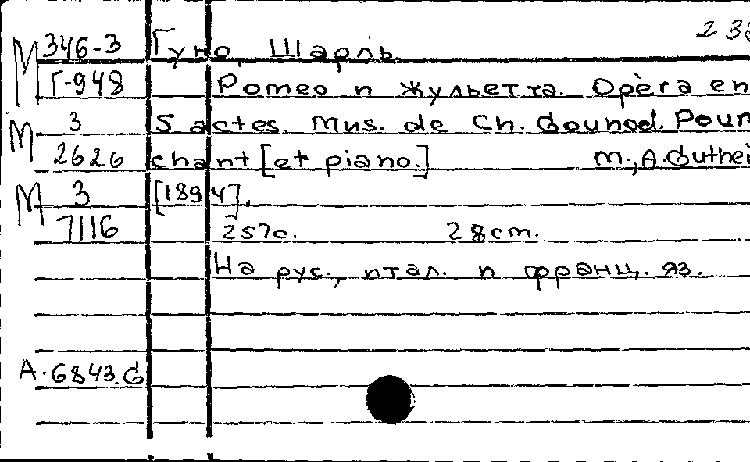 М 346-3 Гуно, Шарль
Г-948 Ромео и Жульетта. Opèra en
М 3 5 actes. Mus. de Ch. Gounod. Pour
2626 chant [et piano.] М., A. Guthei
М 3 [1894].
7116 257с. 28cm.
На рус., итал. и франц. яз.
А.6843.б